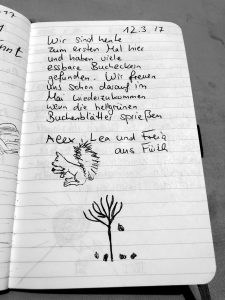 12.3.17
Wir sind heute
zum ersten Mal hier
und haben viele
essbare Bucheckern
gefunden. Wir freuen
uns schon darauf im
Mai wiederzukommen
wenn die hellgrünen
Buchenblätter sprießen
Alex, Lea und
aus Fürth